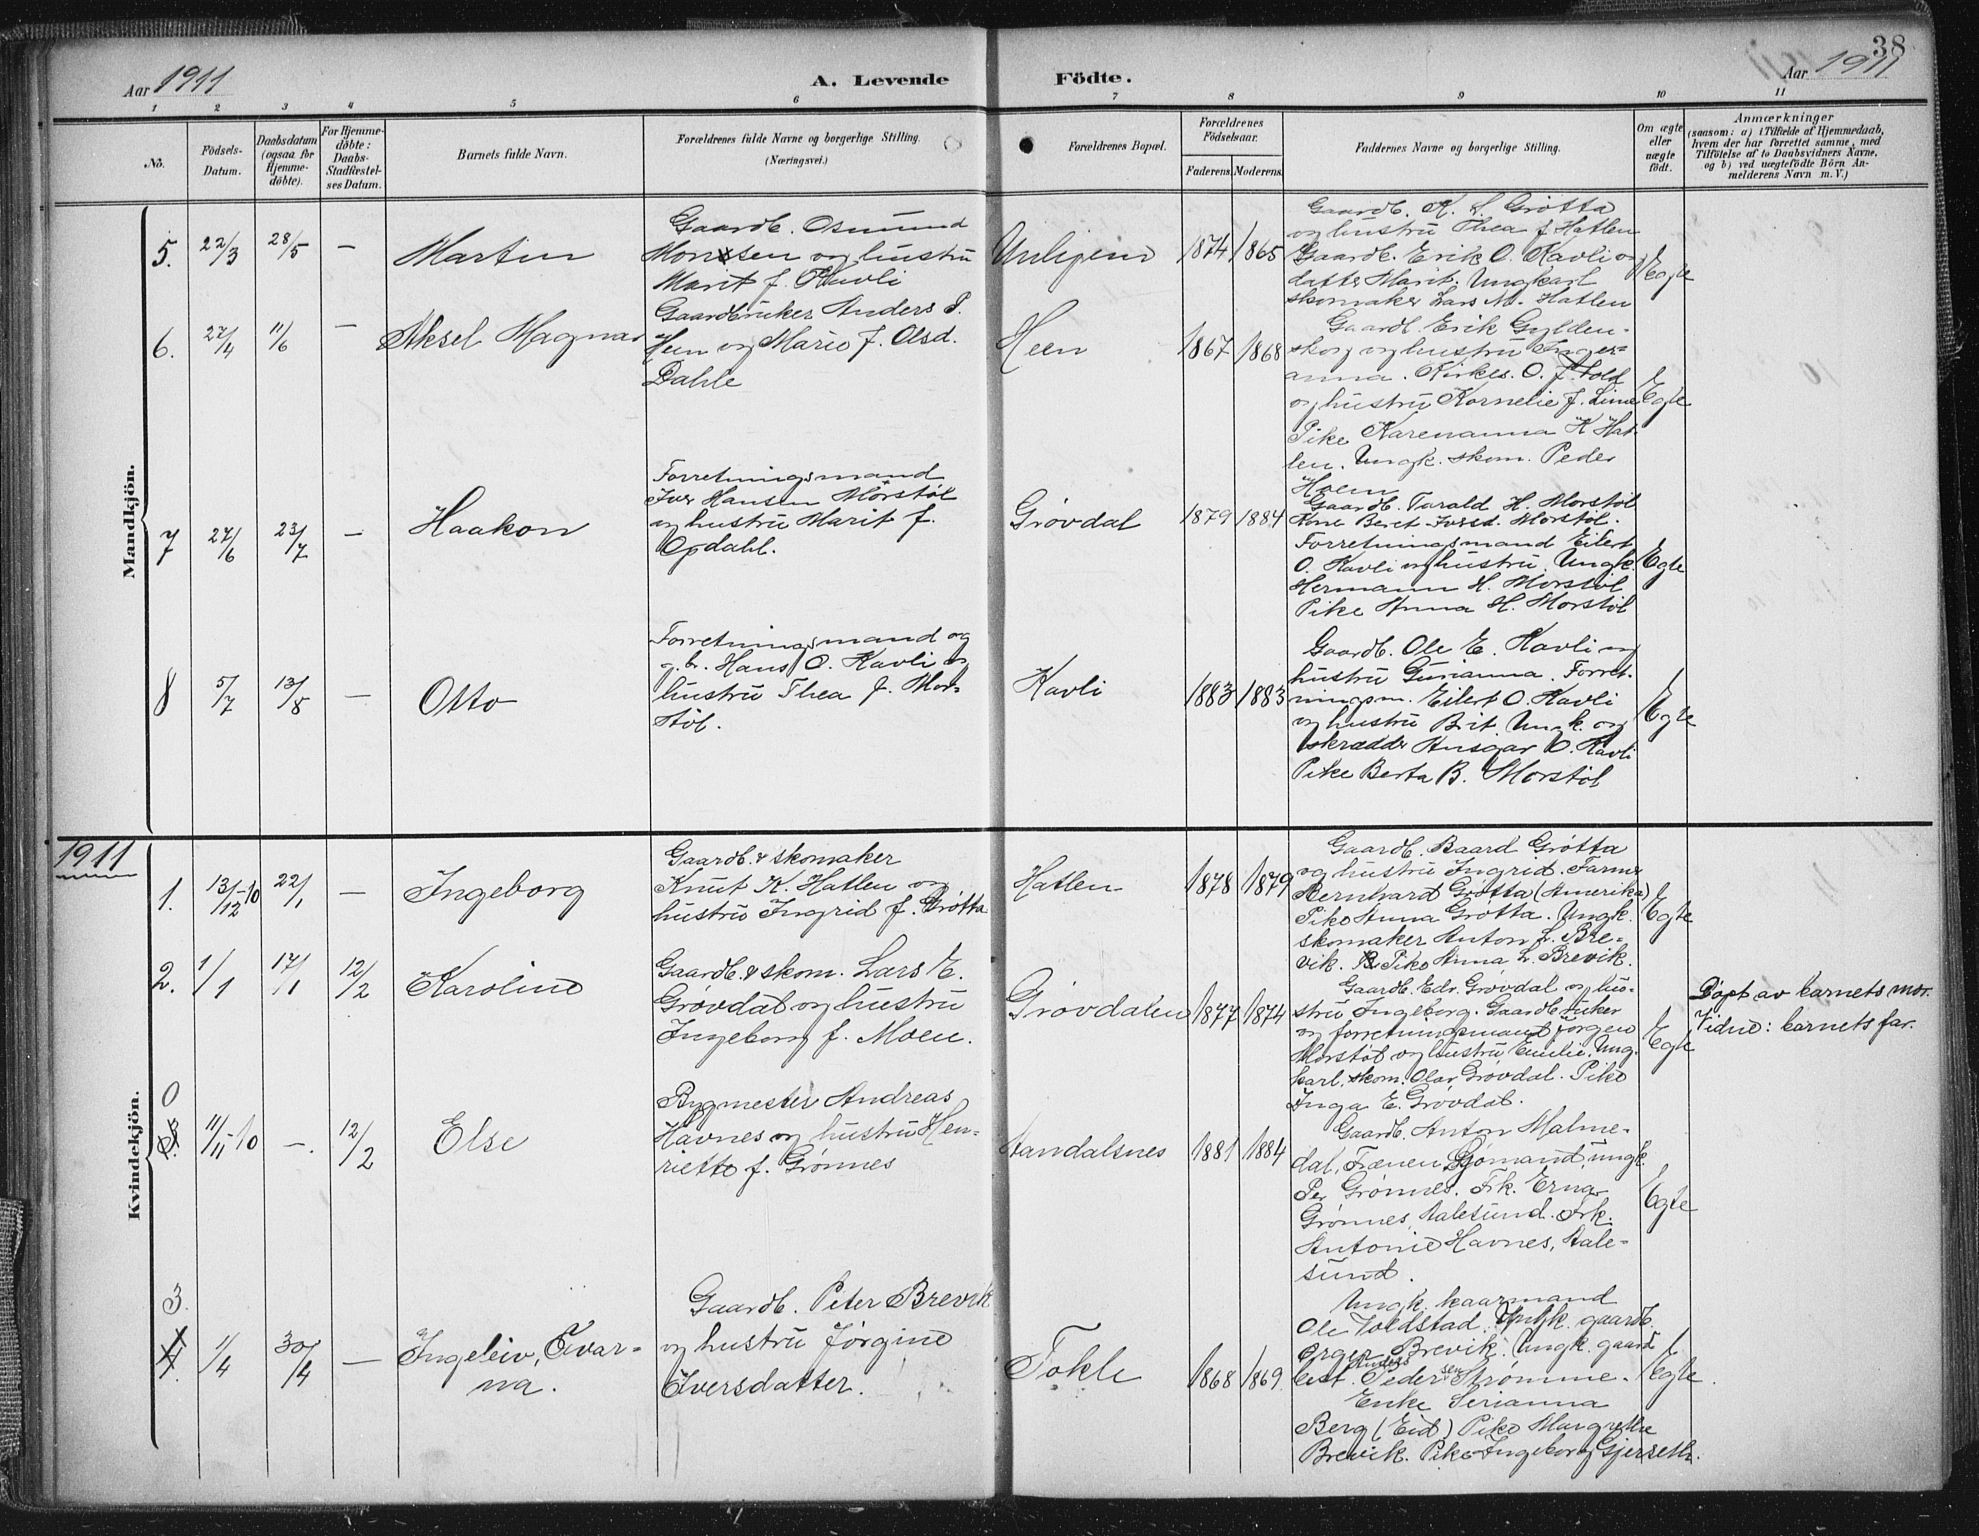 38
Aar 1911 A. Levende Födte. Aar 1911
1 2 3 4 5 6 7 8 9 10 11
No.
Födsels-
Datum.
Daabsdatum
(ogsaa for
Hjemme-
döbte).
For Hjemme-
döbte:
Daabs-
Stadfæstel-
ses Datum.
Barnets fulde Navn.
Forældrenes fulde Navne og borgerlige Stilling.
(Næringsvei.)
Forældrenes Bopæl.
Forældrenes
Födselsaar.
Faderens. Moderens.
Faddernes Navne og borgerlige Stilling.
Om ægte
eller
uægte
födt.
Anmærkninger
(saasom: a) i Tilfælde af Hjemmedaab,
hvem der har forrettet samme, med
Tilföielse af to Daabsvidners Navne,
og b) ved uægtefödte Börn An-
melderens Navn m. V.)
Mandkjön.
5. 22/3 28/5 — Martin
Gaardb. Osmund
Monsen og hustru
Marit f. Kavli
Unhjem 1874 1865
Gaardb. K. L. Grøtta
og hustru Thea f. Hatlen
Gaardb. Erik O. Kavli og
datter Marit. Ungkarl
skomaker Lars M. Hatlen
Egte
6. 27/4 11/6 — Aksel Magnar
Gaardbruker Anders P.
Heen og Marie f. Olsd.
Dahle
Heen 1867 1868
Gaardb. Erik Gylden-
skog og hustru Inger-
anna. Kirkes. O. J. Vold
og hustru Kornelie f. Lime
Pike Karenanna K Hat-
len. Ungk. skom. Peder
Hoem
Egte
7 27/6 23/7 — Haakon
Forretningsmand
Iver Hansen Morstøl
og hustru Marit f.
Opdahl.
Grøvdal 1879 1884
Gaardb. Tarald H. Morstøl
Kone Beret Iversd. Morstøl.
Forretningsmand Eilert
O. Kavli og hustru. Ungk.
Hermann H. Morstøl
Pike Anna H. Morstøl
Egte
8 5/7 13/8 — Otto
Forretningsmand og
g.b. Hans O. Kavli og
hustru Thea f. Mor-
støl.
Kavli 1883 1883
Gaardb. Ole E. Kavli og
hustru Gurianna. Forret-
ningsm. Eilert O. Kavli
og hustru Brit. Ungk. og
skrædder Ansgar O. Kavli
Pike Berta B. Morstøl
Egte
1911
Kvindekjön.
1. 13/12-10 22/1 — Ingeborg
Gaardb. & skomaker
Knut K. Hatlen og
hustru Ingrid f. Grøtta
Hatlen 1878 1879
Gaardb. Baard Grøtta
og hustru Ingrid. Farmer
Bernhard Grøtta (Amerika)
Pike Anna Grøtta. Ungk.
skomaker Anton L. Bre-
vik. Pike Anna L. Brevik.
Egte
2. 1/1 17/1 12/2 Karoline
Gaardb. & skom. Lars E.
Grøvdal og hustru
Ingeborg f. Moen.
Grøvdalen 1877 1874
Gaardb. Edv. Grøvdal og hu-
stru Ingeborg. Gaardbruker
og forretningsmand Jørgen
Morstøl og hustru Emilie. Ung-
karl. skom. Olav Grøvdal. Pike
Inga E. Grøvdal.
Egte
Døpt av barnets mor.
Vidne: barnets far.
0
3. 11/11-10 —. 12/2 Else
Bygmester Andreas
Havnes og hustru Hen-
riette f. Grønnes
Aandalsnes 1881 1884
Gaardb. Anton Malme-
dal, Frænen, Sjømand, ungk.
Per Grønnes. Frk. Erna
Grønnes, Aalesund. Frk.
Antonie Havnes, Aale-
sund.
Egte
3.
4. 1/4 30/4 — Ingeleiv, Ivar-
na.
Gaardb. Peter Brevik
og hustru Jørgine
Iversdatter.
Tokle 1868 1869
Ungk. kaarmand
Ole Voldstad. Ungk. gaardb.
Brevik. Ungk. gaard
best. Peder Anders sen Strømme.
Enke Serianna
Berg (Eid) Pike Margrethe
Brevik. Pike Ingeborg Gjerseth.
Egte.